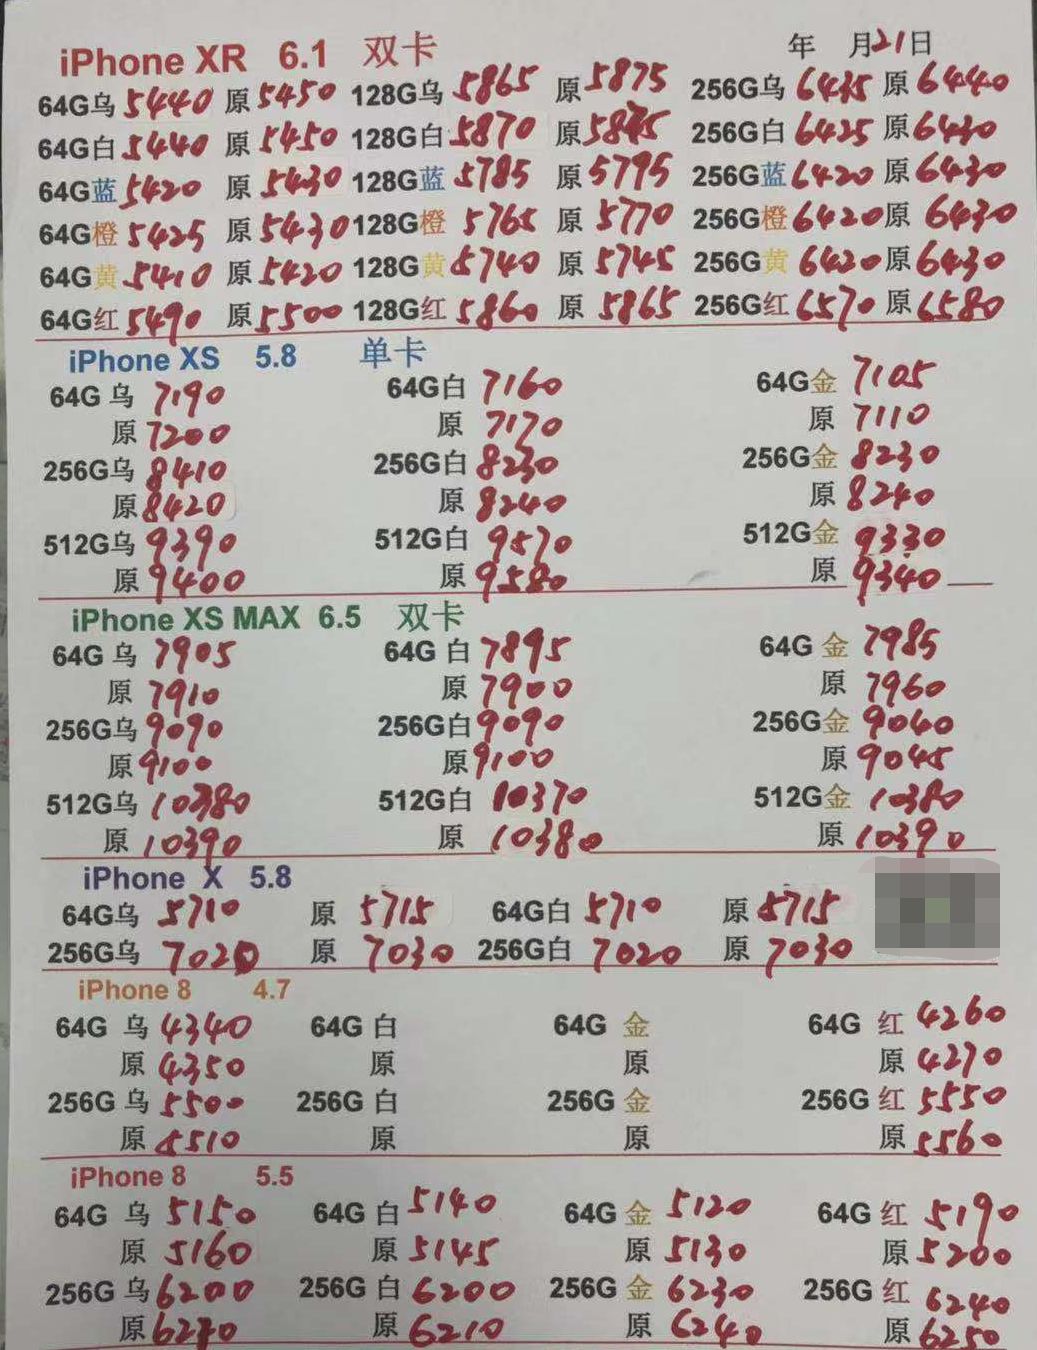 iPhone XR 6.1 双卡 年 月21日
64G乌 5440 原 5450 128G乌 5865 原 5875 256G乌 6435 原 6440
64G白 5440 原 5450 128G白 5870 原 5875 256G白 6425 原 6430
64G蓝 5420 原 5430 128G蓝 5785 原 5795 256G蓝 6420 原 6430
64G橙 5425 原 5430 128G橙 5765 原 5770 256G橙 6420 原 6430
64G黄 5410 原 5420 128G黄 5740 原 5745 256G黄 6420 原 6430
64G红 5490 原 5500 128G红 5860 原 5865 256G红 6570 原 6580
iPhone XS 5.8 单卡
64G 乌 7190 64G白 7160 64G金 7105
原 7200 原 7170 原 7110
256G乌 8410 256G白 8230 256G金 8230
原 8420 原 8240 原 8240
512G乌 9390 512G白 9570 512G金 9330
原 9400 原 9580 原 9340
iPhone XS MAX 6.5 双卡
64G 乌 7905 64G 白 7895 64G 金 7985
原 7910 原 7900 原 7960
256G乌 9090 256G白 9090 256G金 9040
原 9100 原 9100 原 9045
512G乌 10380 512G白 10370 512G金 10380
原 10390 原 10380 原 10390
iPhone X 5.8
64G乌 5710 原 5715 64G白 5710 原 5715
256G乌 7020 原 7030 256G白 7020 原 7030
iPhone 8 4.7
64G 乌 4340 64G 白 64G 金 64G 红 4260
原 4350 原 原 原 4270
256G 乌 5500 256G 白 256G 金 256G 红 5550
原 5510 原 原 原 5560
iPhone 8 5.5
64G 乌 5150 64G 白 5140 64G 金 5120 64G 红 5190
原 5160 原 5145 原 5130 原 5200
256G 乌 6200 256G 白 6200 256G 金 6230 256G 红 6240
原 6210 原 6210 原 6240 原 6250